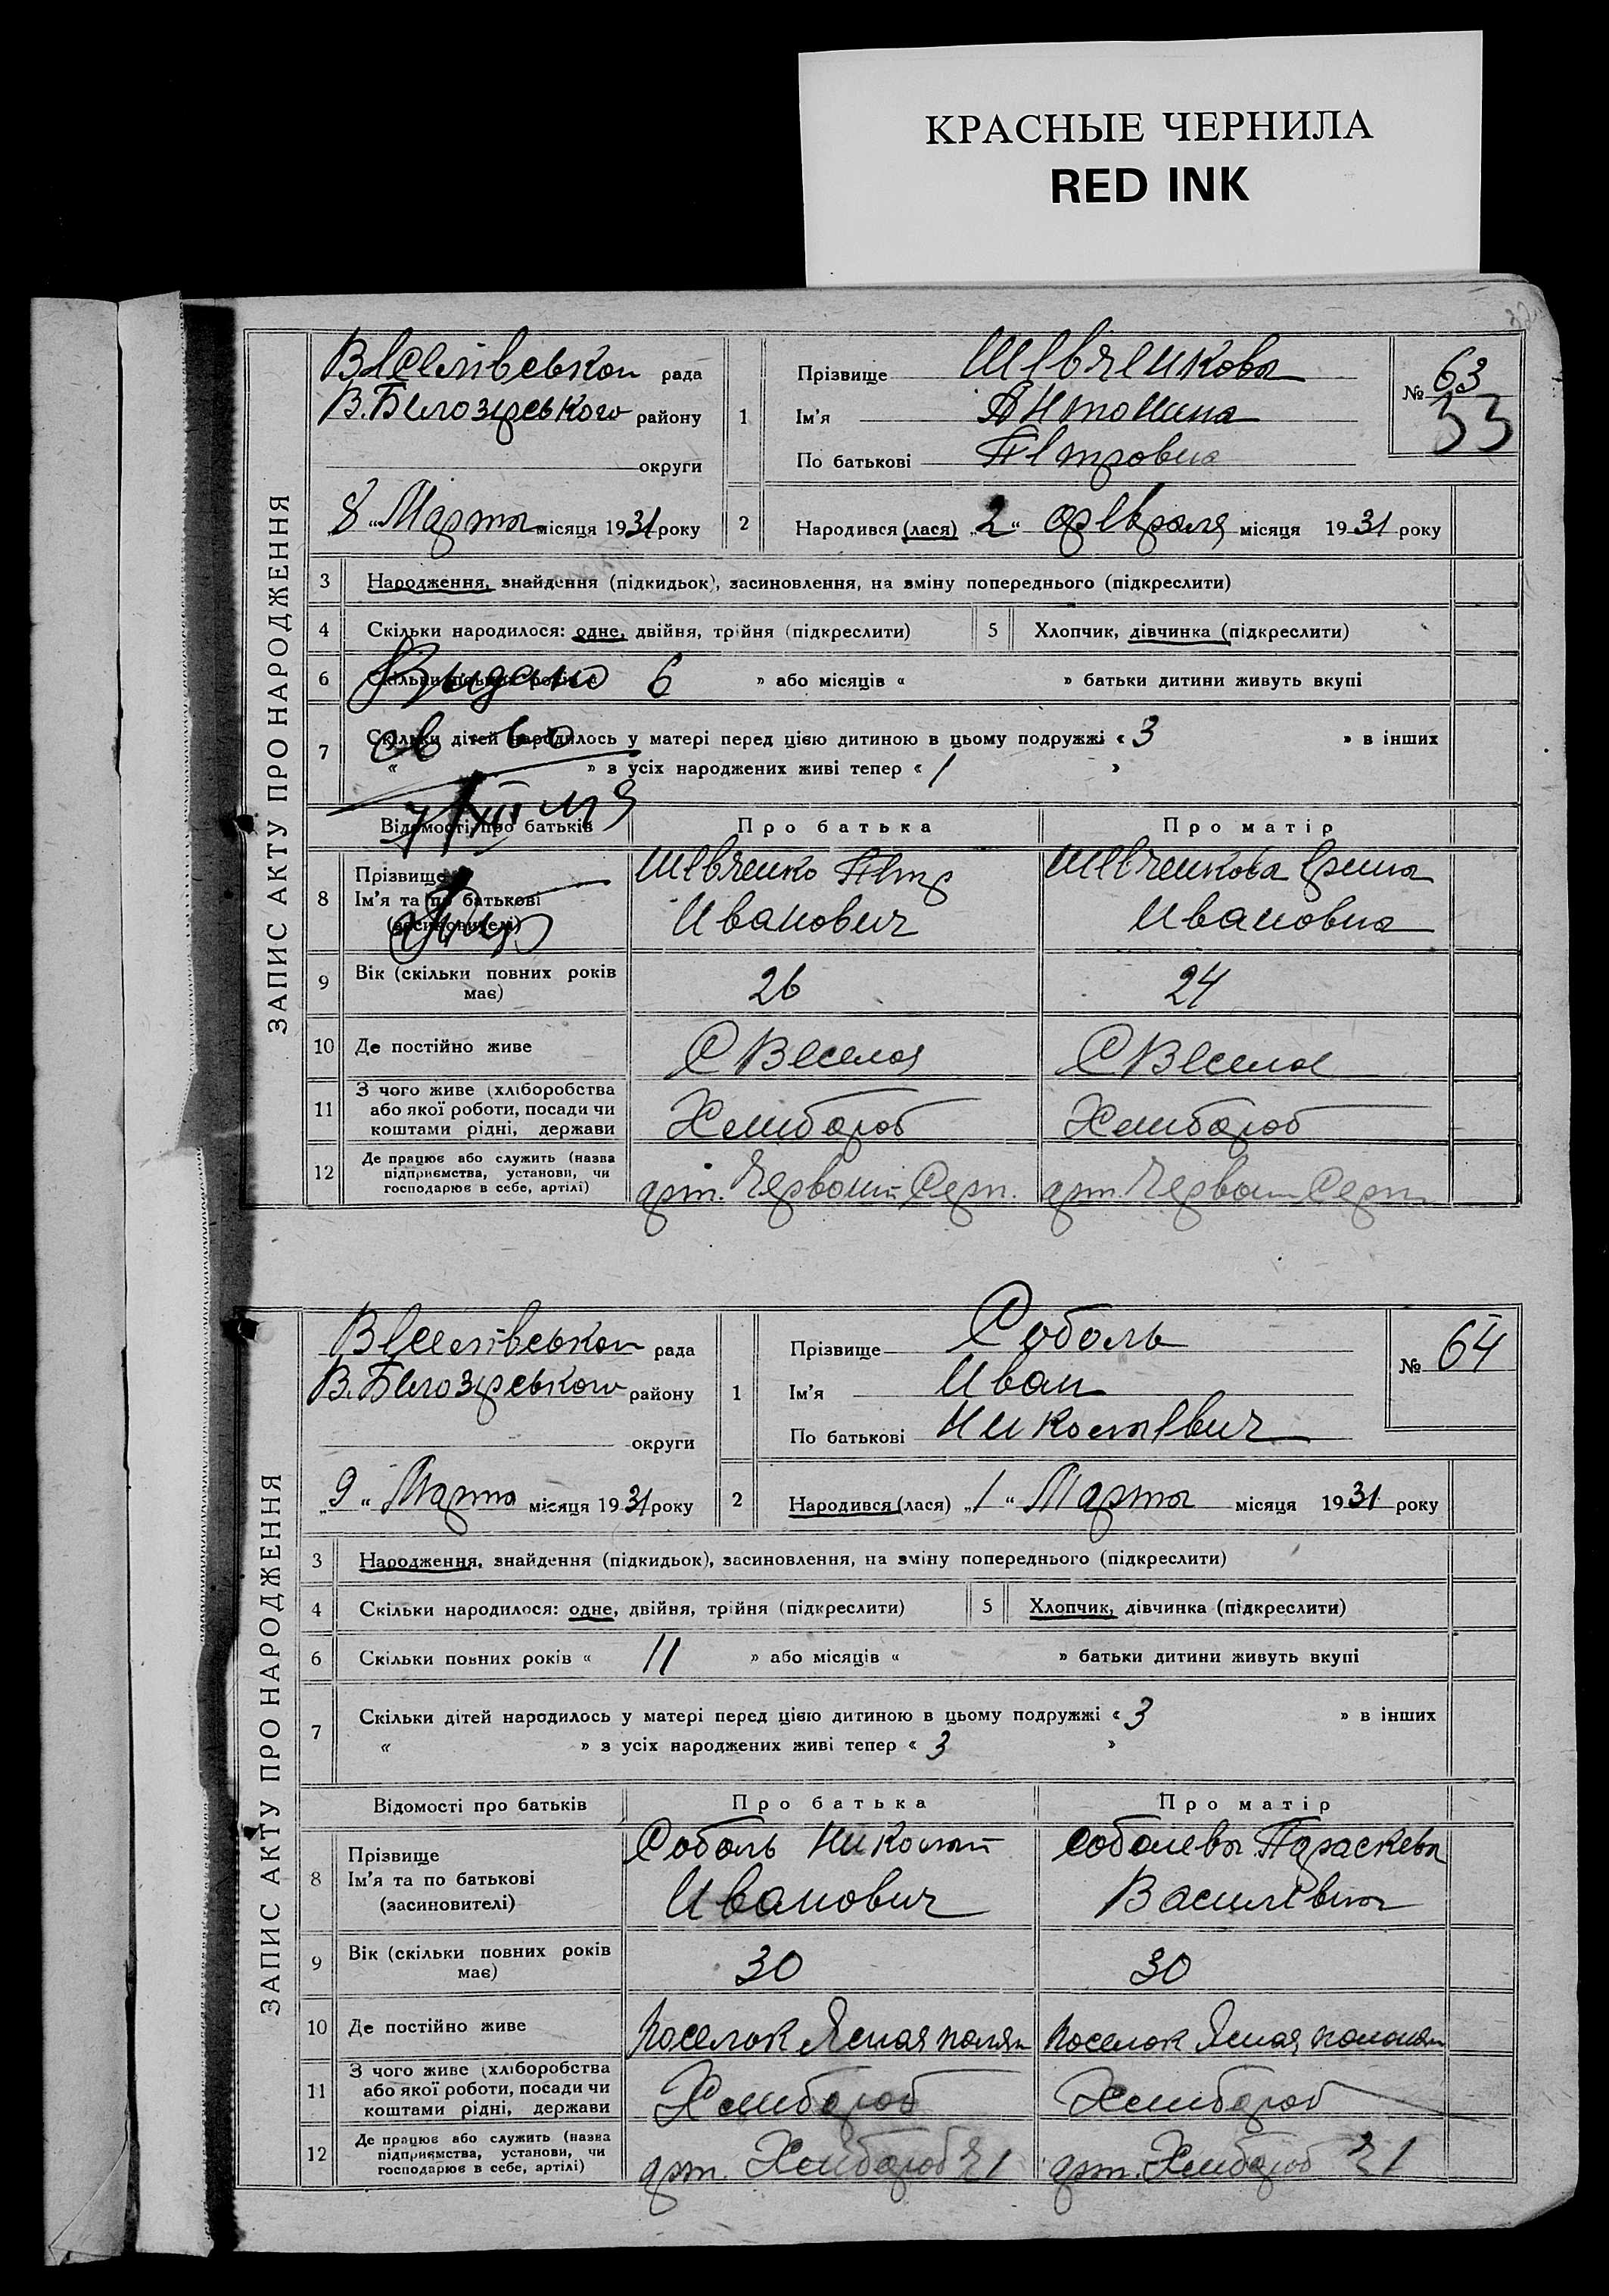 КРАСНЫЕ ЧЕРНИЛА
RED INK
ЗАПИС АКТУ ПРО НАРОДЖЕННЯ
Веселівської рада
В. Білозірського району
округи
„8“ Марта місяця 1931 року
1
Прізвище Шевченкова
Ім'я Антонина
По батькові Петровна
№ 63
33
2
Народився (лася) „2“ февраля місяця 1931 року
3 Народження, знайдення (підкидьок), засиновлення, на зміну попереднього (підкреслити)
4 Скільки народилося: одне, двійня, трійня (підкреслити)
5 Хлопчик, дівчинка (підкреслити)
6 Скільки повних років « 6 » або місяців « » батьки дитини живуть вкупі
Выдано
7 Скільки дітей народилось у матері перед цією дитиною в цьому подружжі « 3 » в інших
св-во
« » з усіх народжених живі тепер « 1 »
Відомості про батьків Про батька Про матір
8 Прізвище Ім'я та по батькові (засиновителі)
Шевченко Петр Иванович
Шевченкова Ирина Ивановна
9 Вік (скільки повних років має) 26 24
10 Де постійно живе С Веселая С Веселое
11 З чого живе (хліборобства або якої роботи, посади чи коштами рідні, держави
Хлибороб Хлибороб
12 Де працює або служить (назва підприємства, установи, чи господарює в себе, артілі)
арт. Червоний Серп. арт. Червоний Серп
ЗАПИС АКТУ ПРО НАРОДЖЕННЯ
Веселівської рада
В. Білозірського району
округи
„9“ Марта місяця 1931 року
1
Прізвище Соболь
Ім'я Иван
По батькові Николаевич
№ 64
2
Народився (лася) „1“ Марта місяця 1931 року
3 Народження, знайдення (підкидьок), засиновлення, на зміну попереднього (підкреслити)
4 Скільки народилося: одне, двійня, трійня (підкреслити)
5 Хлопчик, дівчинка (підкреслити)
6 Скільки повних років « 11 » або місяців « » батьки дитини живуть вкупі
7 Скільки дітей народилось у матері перед цією дитиною в цьому подружжі « 3 » в інших
« » з усіх народжених живі тепер « 3 »
Відомості про батьків Про батька Про матір
8 Прізвище Ім'я та по батькові (засиновителі)
Соболь Николай Иванович
Соболева Параскева Василівна
9 Вік (скільки повних років має) 30 30
10 Де постійно живе Поселок Ясная Поселок Ясная
11 З чого живе (хліборобства або якої роботи, посади чи коштами рідні, держави
Хлибороб Хлибороб
12 Де працює або служить (назва підприємства, установи, чи господарює в себе, артілі)
арт. Хлибороб Ч 1 арт. Хлибороб Ч 1